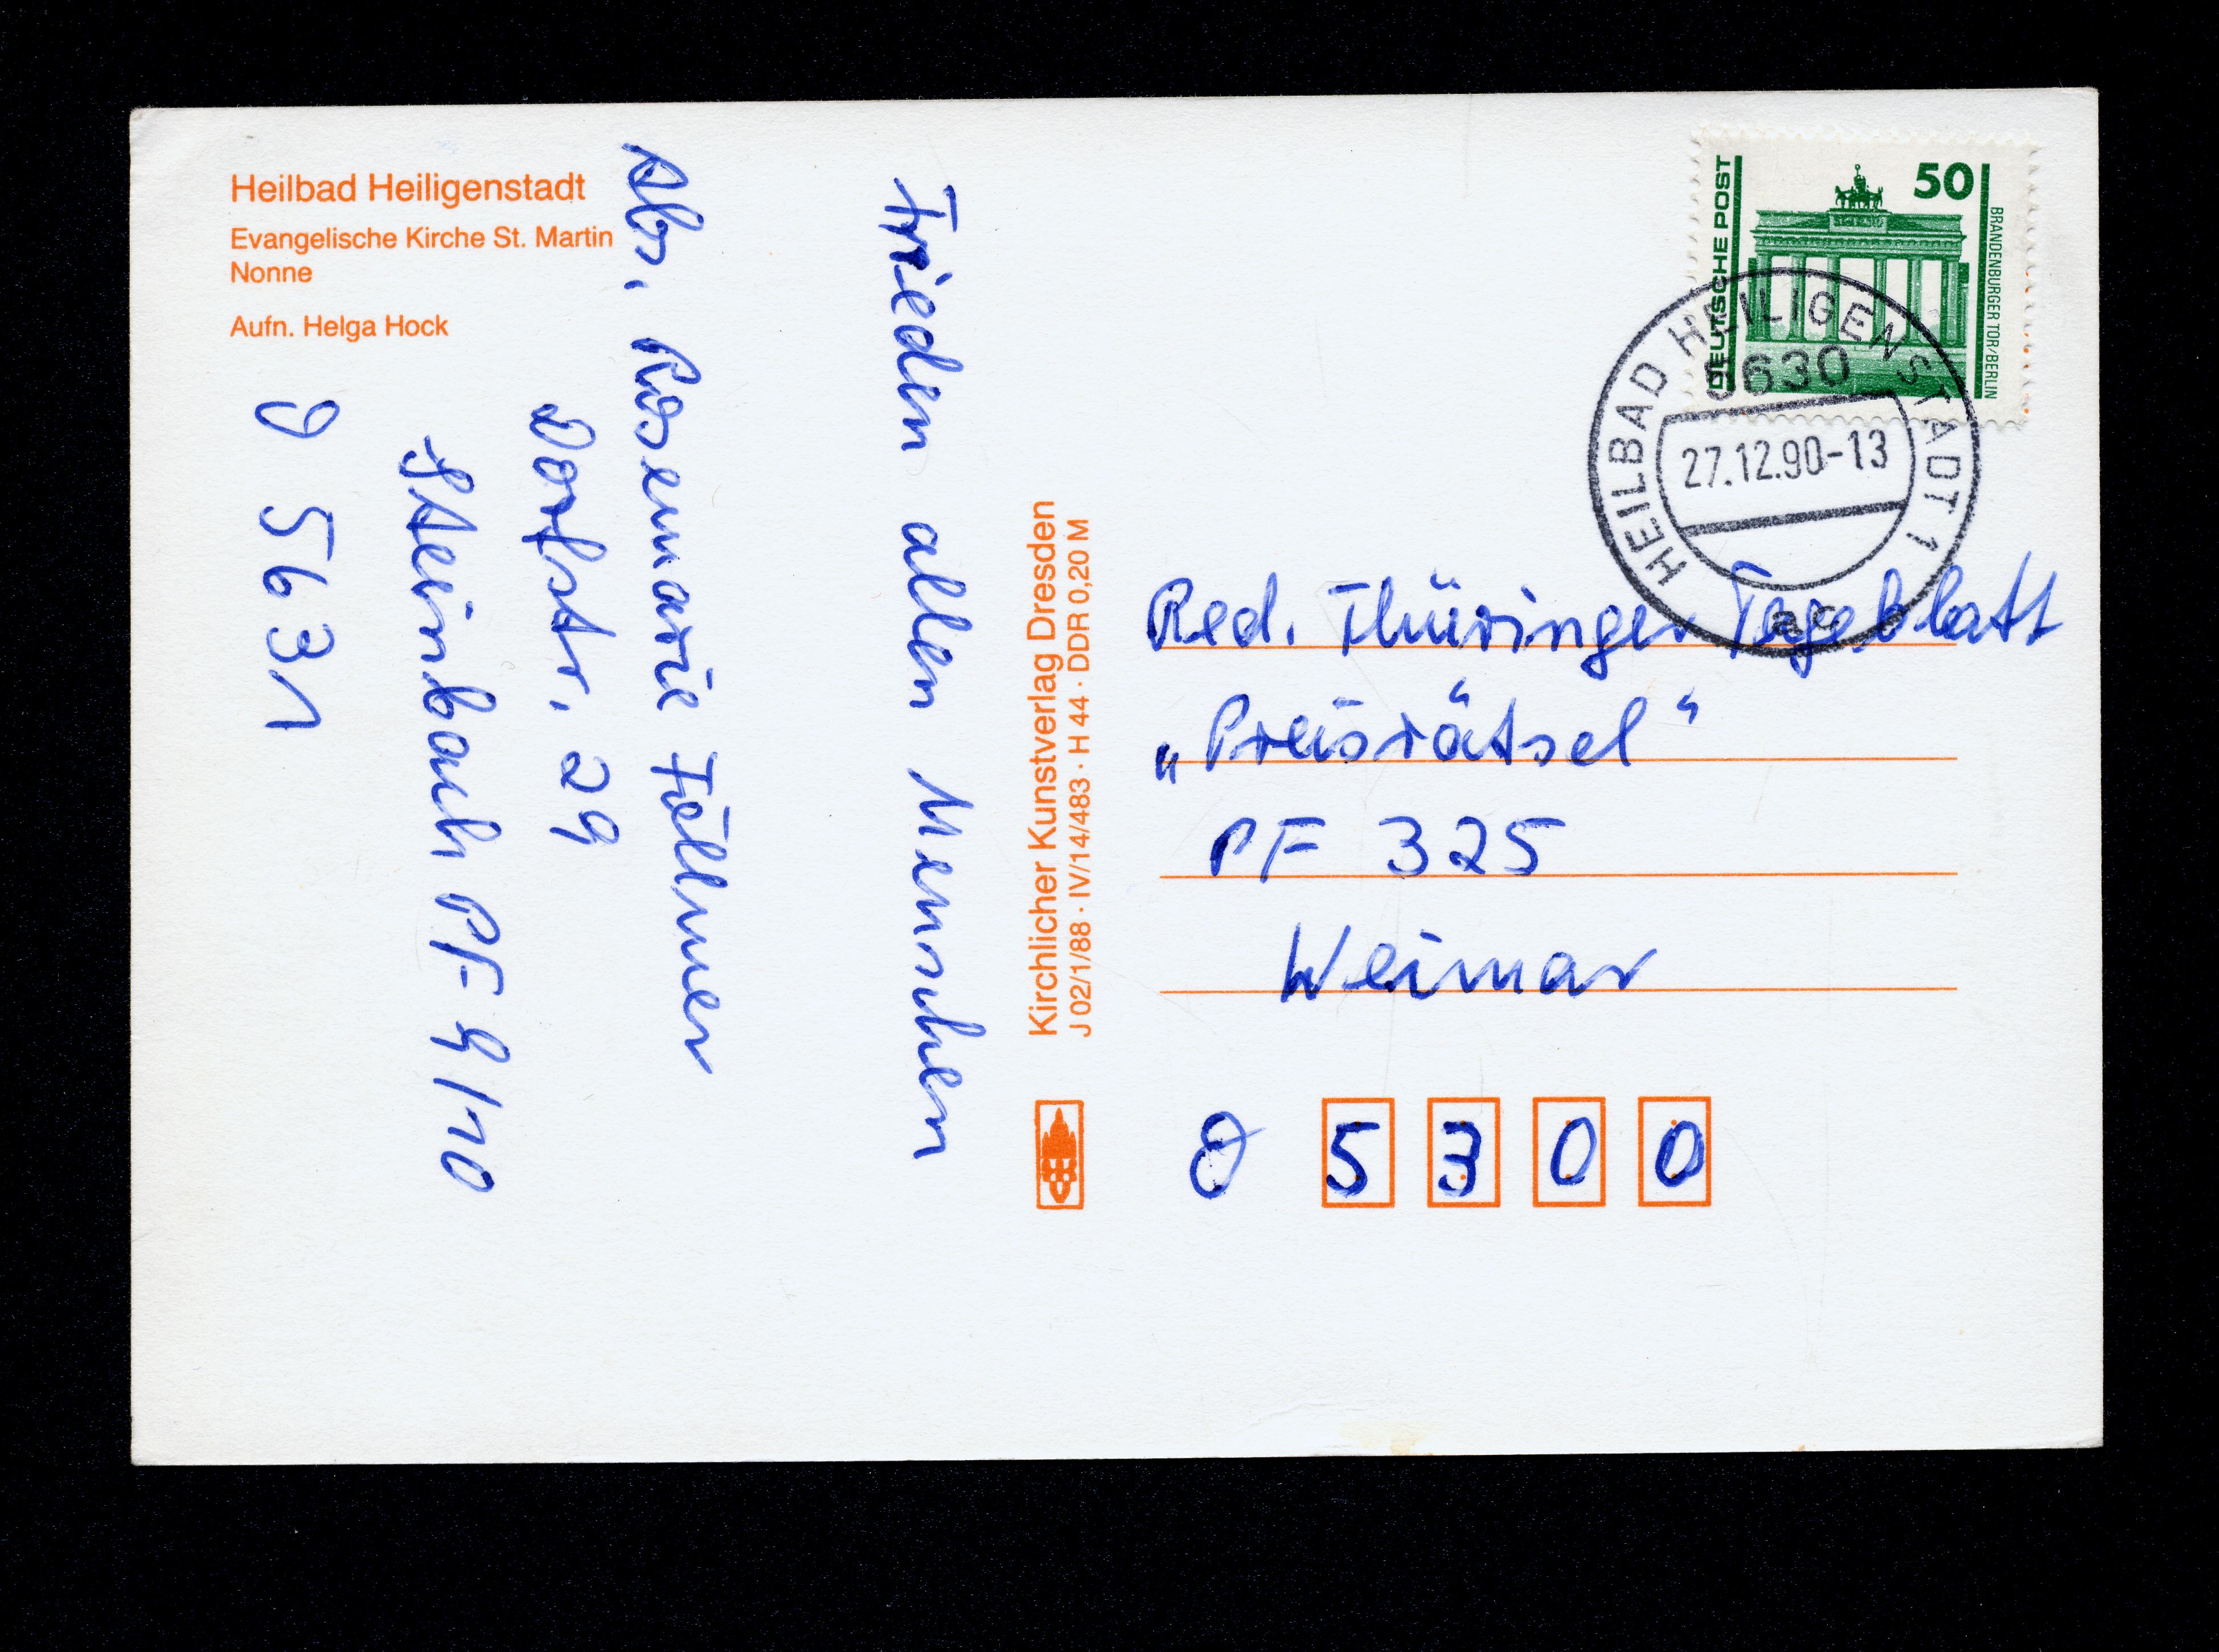 Heilbad Heiligenstadt
Evangelische Kirche St. Martin
Nonne
Aufn. Helga Hock
Frieden allen Menschen
Abs. Rosemarie Föllmer
Dorfstr. 29
Steinbach PF 9/10
O 5631
Kirchlicher Kunstverlag Dresden
J 02/1/88 · IV/14/483 · H 44 · DDR 0,20 M
DEUTSCHE POST
50
BRANDENBURGER TOR/BERLIN
HEILBAD HEILIGENSTADT 1
5630
27.12.90-13
Red. Thüringer Tageblatt
„Preisrätsel“
PF 325
Weimar
O 5300